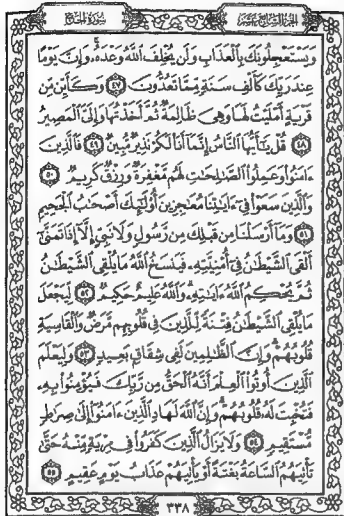 الجزء السابع عشر
سورة الحج
وَيَسْتَعْجِلُونَكَ بِالْعَذَابِ وَلَن يُخْلِفَ اللَّهُ وَعْدَهُ ۚ وَإِنَّ يَوْمًا
عِندَ رَبِّكَ كَأَلْفِ سَنَةٍ مِّمَّا تَعُدُّونَ ٤٧ وَكَأَيِّن مِّن
قَرْيَةٍ أَمْلَيْتُ لَهَا وَهِيَ ظَالِمَةٌ ثُمَّ أَخَذْتُهَا وَإِلَيَّ الْمَصِيرُ
٤٨ قُلْ يَٰٓأَيُّهَا النَّاسُ إِنَّمَا أَنَا لَكُمْ نَذِيرٌ مُّبِينٌ ٤٩ فَالَّذِينَ
ءَامَنُوا وَعَمِلُوا الصَّٰلِحَٰتِ لَهُم مَّغْفِرَةٌ وَرِزْقٌ كَرِيمٌ ٥٠
وَالَّذِينَ سَعَوْا فِىٓ ءَايَٰتِنَا مُعَٰجِزِينَ أُولَٰٓئِكَ أَصْحَٰبُ الْجَحِيمِ
٥١ وَمَآ أَرْسَلْنَا مِن قَبْلِكَ مِن رَّسُولٍ وَلَا نَبِىٍّ إِلَّآ إِذَا تَمَنَّىٰٓ
أَلْقَى الشَّيْطَٰنُ فِىٓ أُمْنِيَّتِهِۦ فَيَنسَخُ اللَّهُ مَا يُلْقِى الشَّيْطَٰنُ
ثُمَّ يُحْكِمُ اللَّهُ ءَايَٰتِهِۦ ۗ وَاللَّهُ عَلِيمٌ حَكِيمٌ ٥٢ لِّيَجْعَلَ
مَا يُلْقِى الشَّيْطَٰنُ فِتْنَةً لِّلَّذِينَ فِى قُلُوبِهِم مَّرَضٌ وَالْقَاسِيَةِ
قُلُوبُهُمْ ۗ وَإِنَّ الظَّٰلِمِينَ لَفِى شِقَاقٍۭ بَعِيدٍ ٥٣ وَلِيَعْلَمَ
الَّذِينَ أُوتُوا الْعِلْمَ أَنَّهُ الْحَقُّ مِن رَّبِّكَ فَيُؤْمِنُوا بِهِۦ
فَتُخْبِتَ لَهُۥ قُلُوبُهُمْ ۗ وَإِنَّ اللَّهَ لَهَادِ الَّذِينَ ءَامَنُوٓا إِلَىٰ صِرَٰطٍ
مُّسْتَقِيمٍ ٥٤ وَلَا يَزَالُ الَّذِينَ كَفَرُوا فِى مِرْيَةٍ مِّنْهُ حَتَّىٰ
تَأْتِيَهُمُ السَّاعَةُ بَغْتَةً أَوْ يَأْتِيَهُمْ عَذَابُ يَوْمٍ عَقِيمٍ ٥٥
٣٣٨